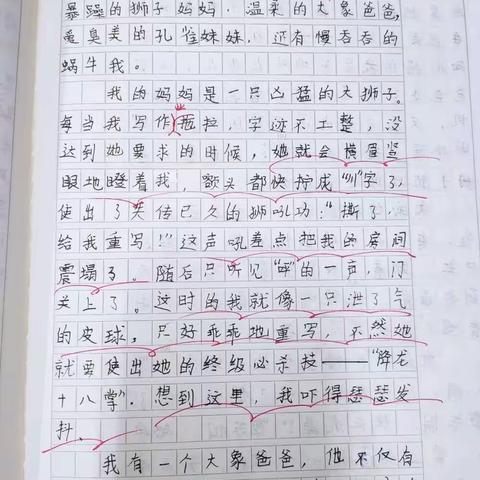 暴躁的狮子妈妈，温柔的大象爸爸，
爱臭美的孔雀妹妹，还有慢吞吞的
蜗牛我。
我的妈妈是一只凶猛的大狮子。
每当我写作拖拉，字迹不工整，没
达到她要求的时候，她就会横眉竖
眼地瞪着我，额头都快拧成“川”字了，
使出了失传已久的狮吼功：“撕了，
给我重写！”这声吼差点把我的房间
震塌了。随后只听见“呯”的一声，门
关上了。这时的我就像一只泄了气
的皮球，只好乖乖地重写，不然她
就要使出她的终级必杀技——“降龙
十八掌”。想到这里，我吓得瑟瑟发
抖。
我有一个大象爸爸，他不仅有